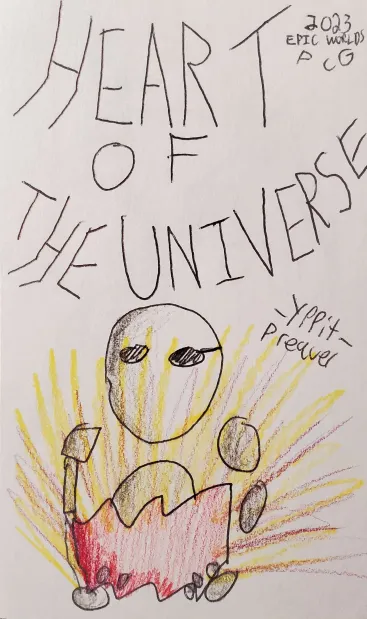 HEART
2023
EPIC WORLDS
P C G
OF
THE UNIVERSE
-Yppit-
Prequel